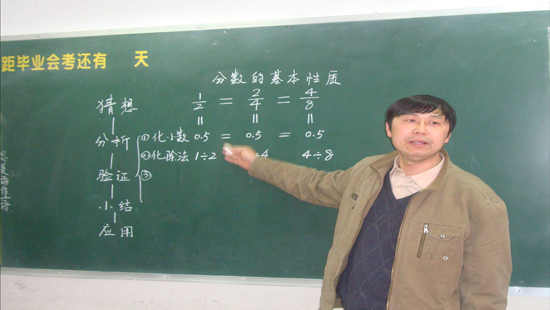 距毕业会考还有 天
分数的基本性质
猜想
1/2 = 2/4 = 4/8
= = =
分析
①化小数 0.5 = 0.5 = 0.5
②化除法 1÷2 ÷4 4÷8
验证
③
小结
应用